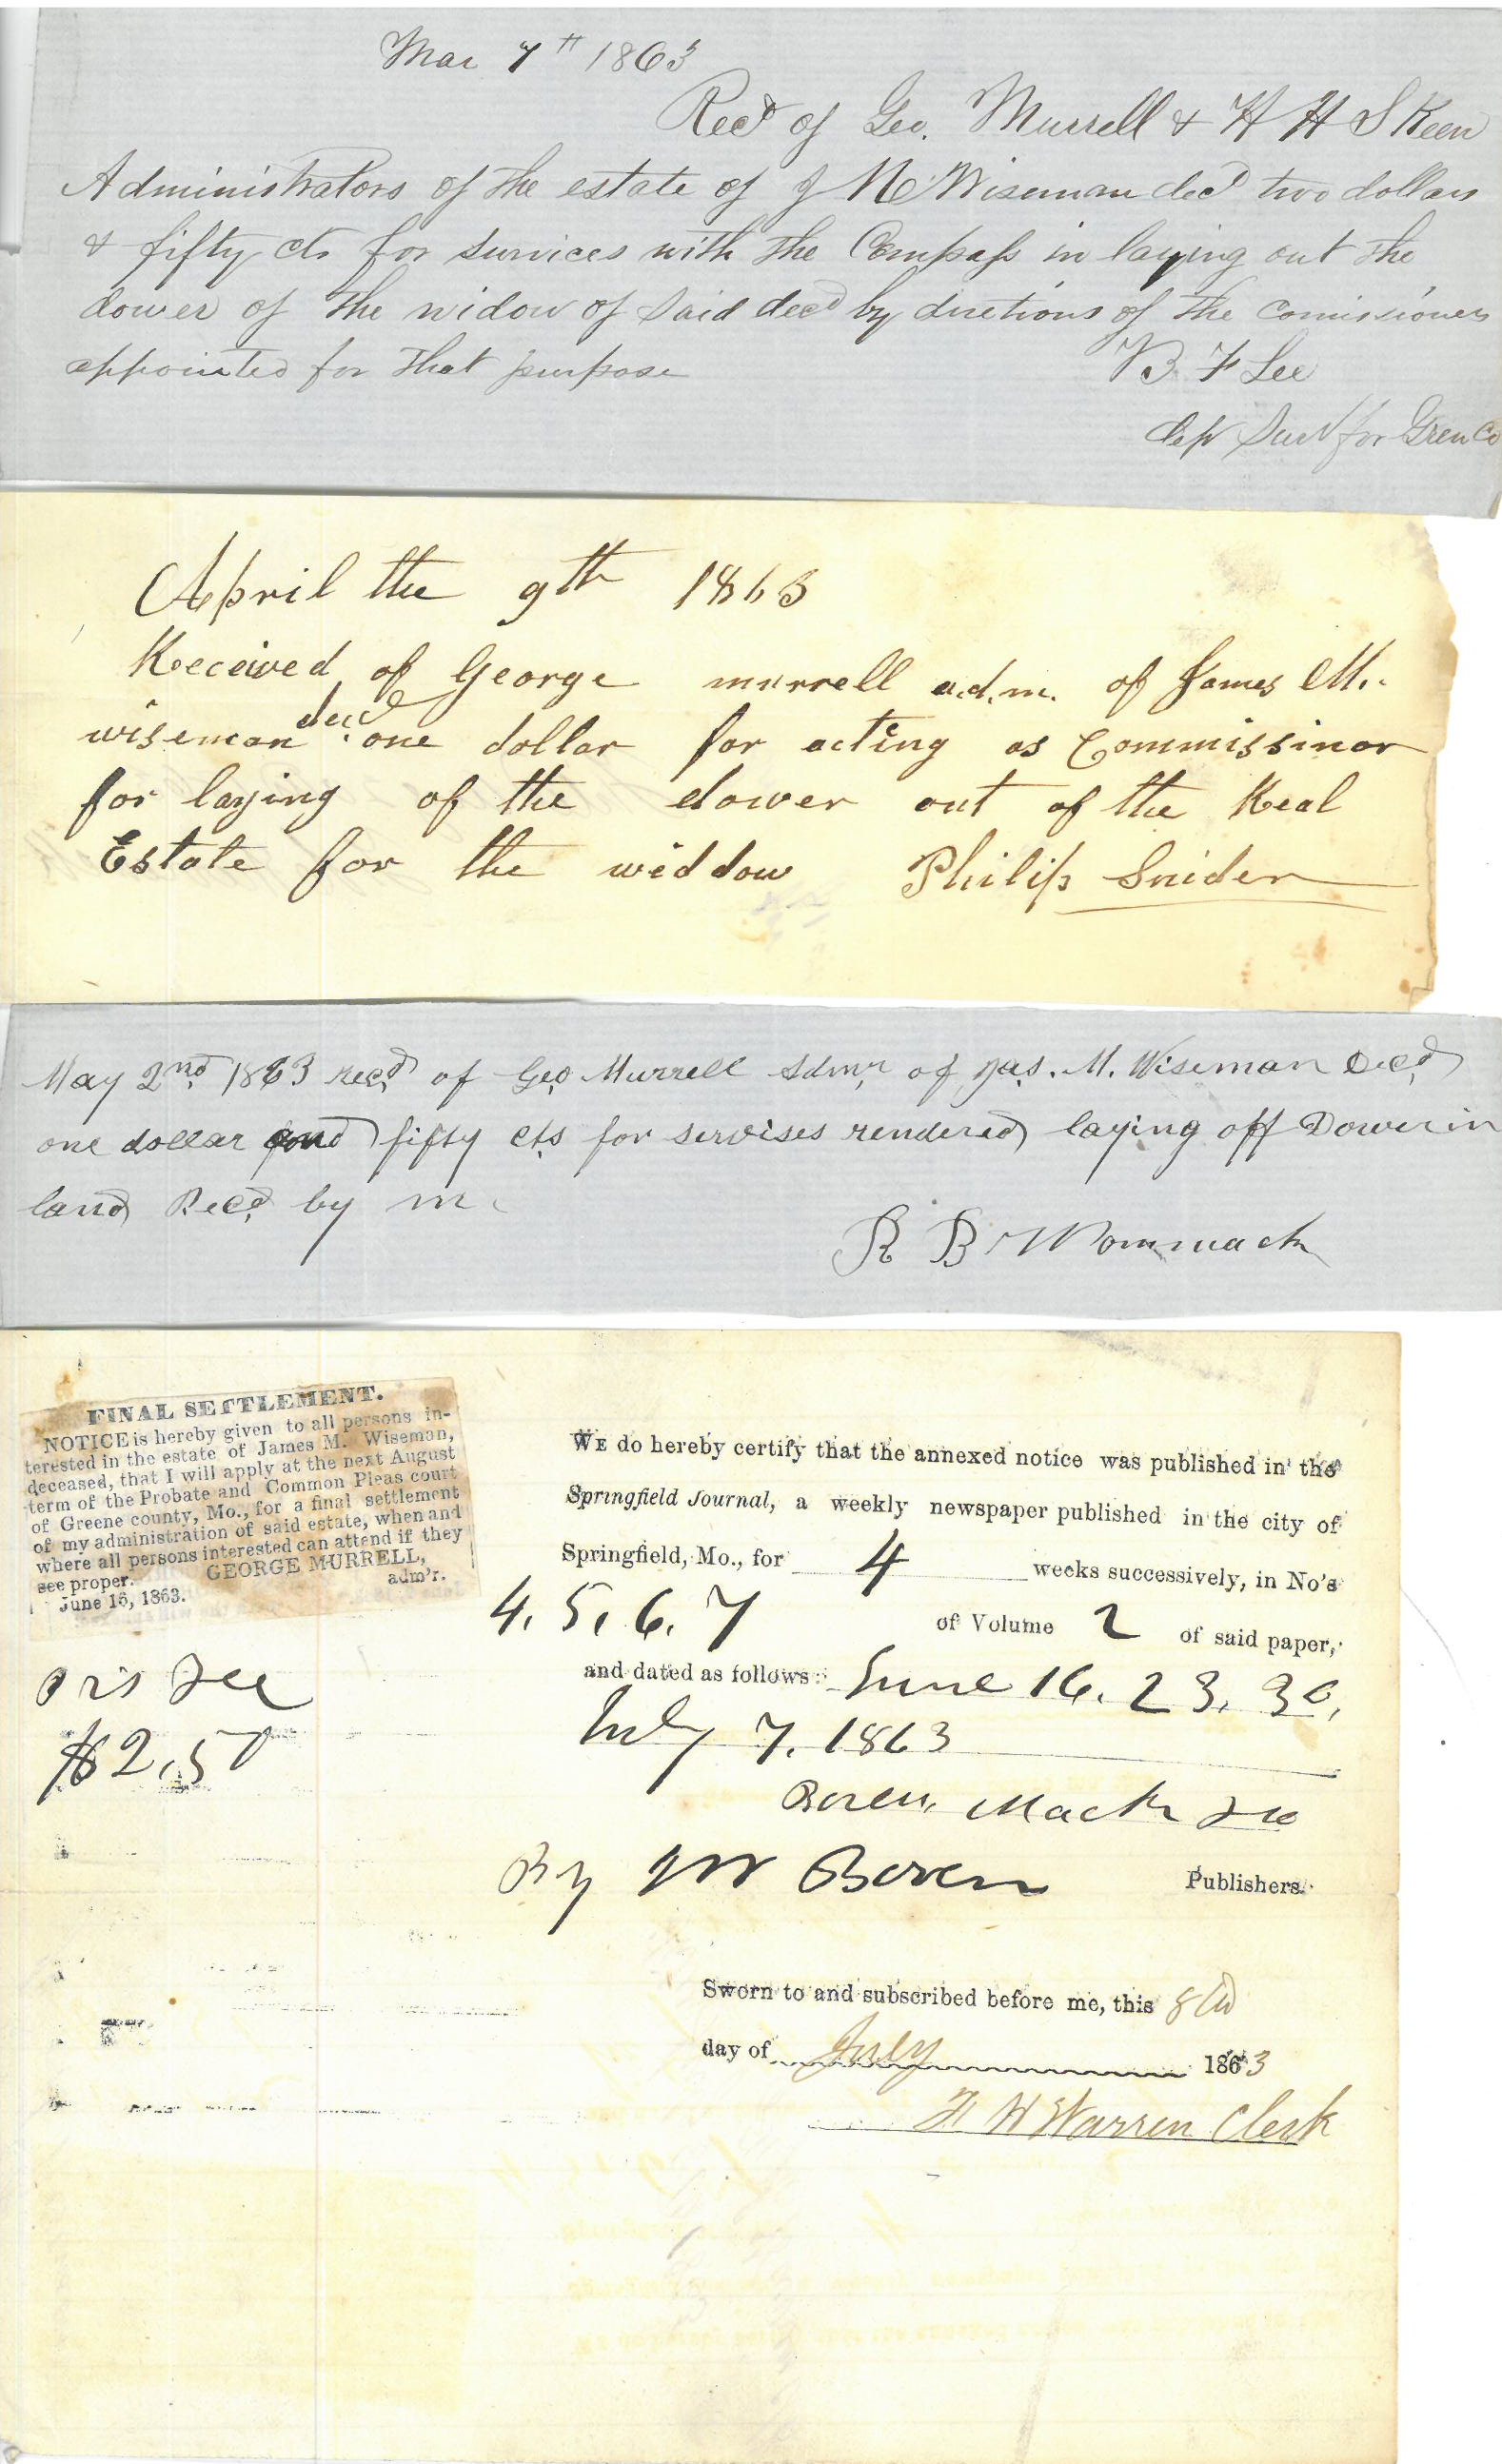 Mar 7th 1863
Recd of Geo. Murrell & H H Skeen
Administrators of the estate of J M Wiseman decd two dollars
& fifty cts for survices with the Compass in laying out the
dower of the widow of said decd by directions of the comissioners
appointed for that purpose
B. F Lee
dep Surv for Gren Co
April the 9th 1863
Received of George murrell a.d.m. of James M.
wiseman decd. one dollar for acting as Commissinor
for laying of the dower out of the Real
Estate for the widdow Philip Snider
May 2nd 1863 recd of Geo Murrell Admr of Jas. M. Wiseman Decd
one dollar and fifty cts for servises rendered laying off Dower in
land Recd by m
R B Wommack
FINAL SETTLEMENT.
NOTICE is hereby given to all persons in-
terested in the estate of James M. Wiseman,
deceased, that I will apply at the next August
term of the Probate and Common Pleas court
of Greene county, Mo., for a final settlement
of my administration of said estate, when and
where all persons interested can attend if they
see proper. GEORGE MURRELL,
June 16, 1863. adm'r.
WE do hereby certify that the annexed notice was published in the
Springfield Journal, a weekly newspaper published in the city of
Springfield, Mo., for 4 weeks successively, in No's
4. 5. 6. 7 of Volume 2 of said paper,
and dated as follows: June 16. 23. 30,
July 7. 1863
Boren, Mack
By J W Boren Publishers.
prs fee
$2.50
Sworn to and subscribed before me, this 8th
day of July 1863
H Warren Clerk